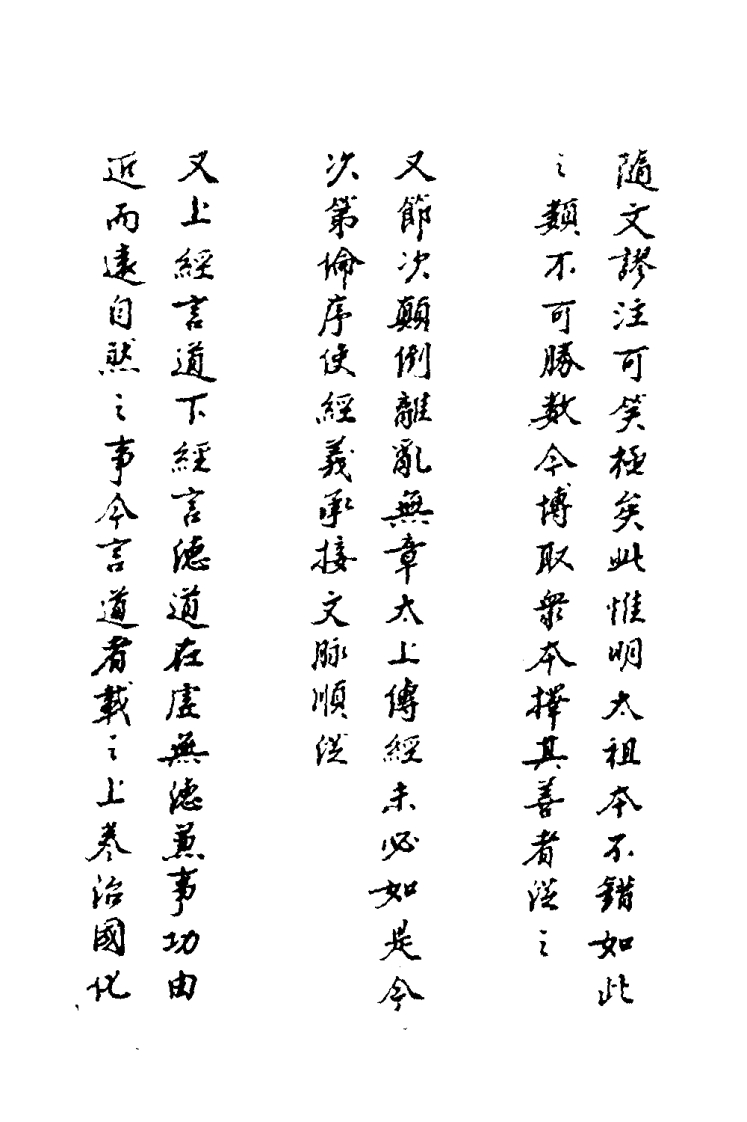 隨文謬注可笑極矣此惟明太祖本不錯如此
之類不可勝数今博取衆本擇其善者從之
又節次顛倒離亂無章太上傳經未必如是今
次第倫序使經義承接文脉順從
又上經言道下經言德道在虛無德兼事功由
近而遠自然之事今言道者載之上卷治國化